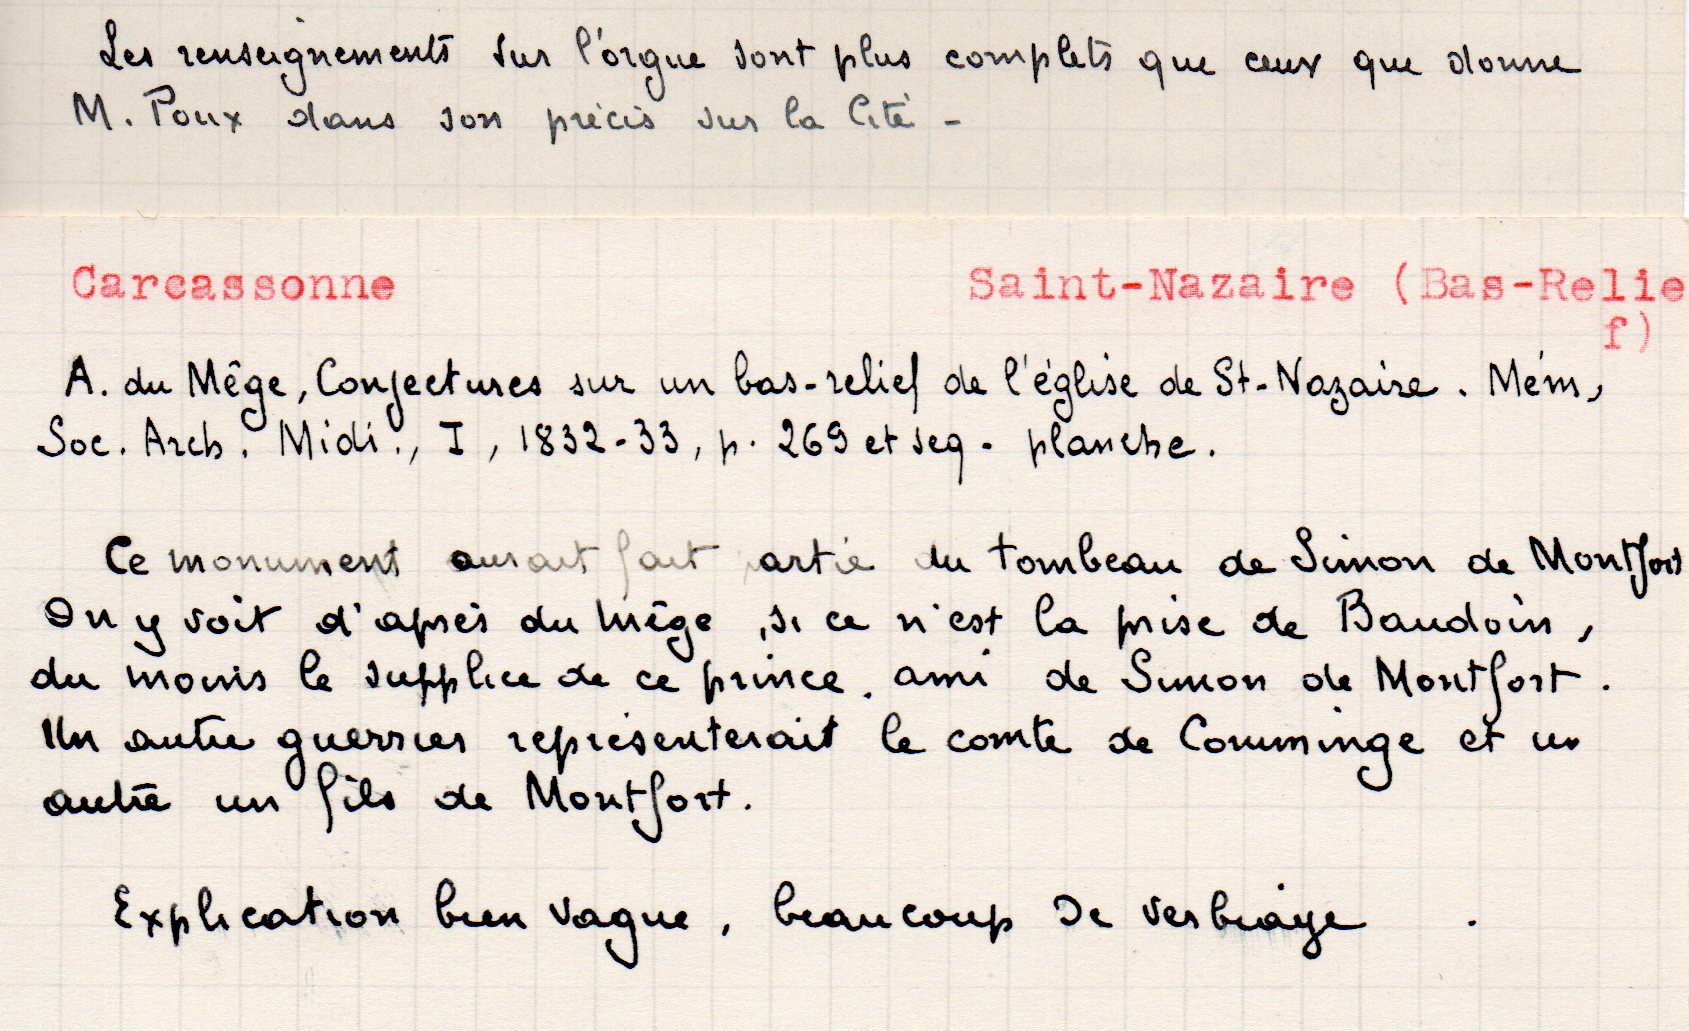 Les renseignements sur l'orgue sont plus complets que ceux que donne
M. Poux dans son précis sur la Cité -
Carcassonne Saint-Nazaire (Bas-Relie
f)
A. du Mège, Conjectures sur un bas-relief de l'église de St-Nazaire. Mém,
Soc. Arch. Midi., I, 1832-33, p. 269 et seq - planche.
Ce monument aurait fait partie du tombeau de Simon de Montfort
On y voit d'après du Mège, si ce n'est la prise de Baudoin,
du moins le supplice de ce prince. ami de Simon de Montfort.
Un autre guerrier représenterait le comte de Comminge et un
autre un fils de Montfort.
Explication bien vague, beaucoup de verbiage .